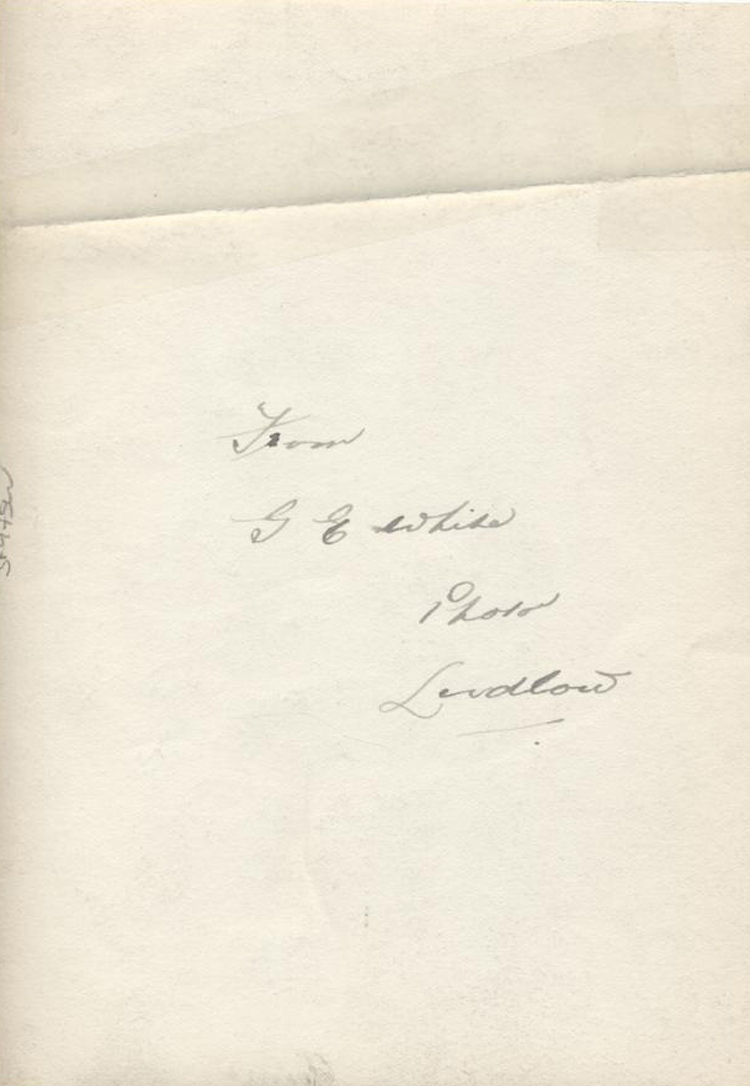 From
G E White
Photo
Ludlow